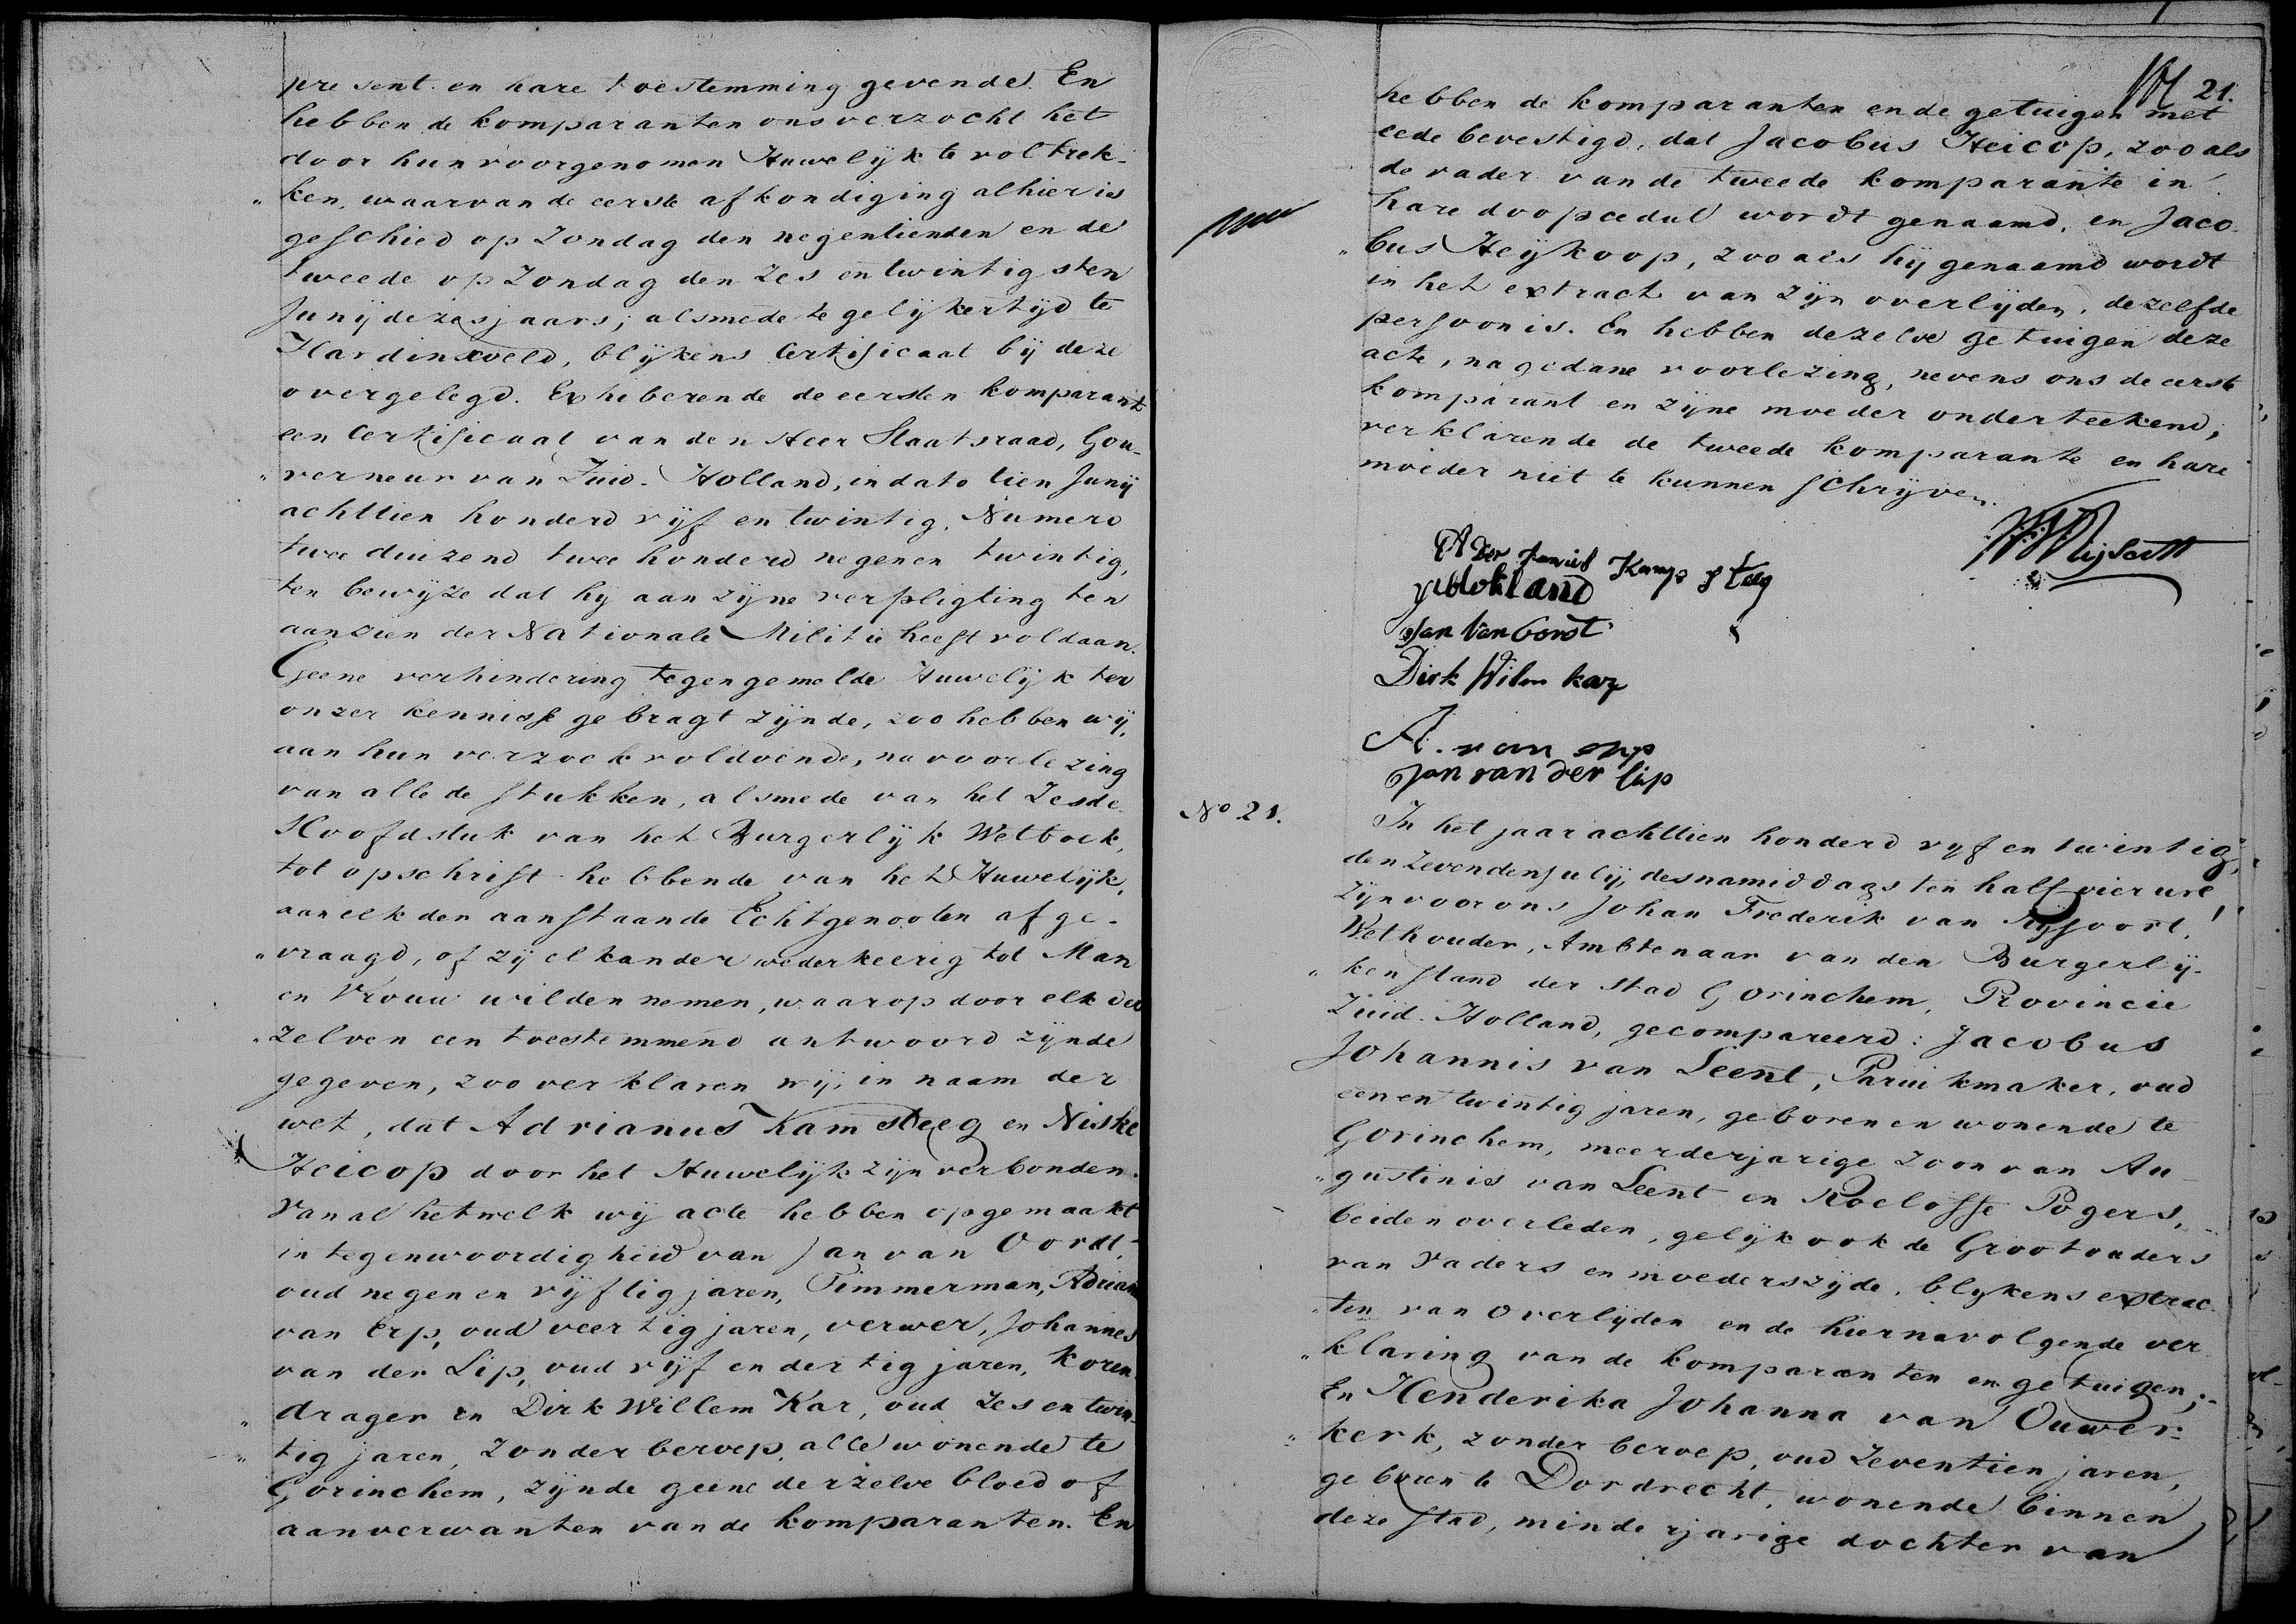 present en hare toestemming gevende. En
hebben de komparanten ons verzocht het
door hun voorgenomen Huwelijk te voltrek-
„ken, waarvan de eerste afkondiging alhier is
geschied op Zondag den negentienden en de
tweede op Zondag den Zes en twintigsten
Junij dezes jaars; alsmede te gelijkertijd te
Hardinxveld, blijkens Certificaat bij deze
overgelegd. Exhiberende de eersten komparant
een Certificaat van den Heer Staatsraad, Gou-
„verneur van Zuid-Holland, in dato tien Junij
achttien honderd vijf en twintig, Numero
twee duizend twee honderd negen en twintig,
ten bewijze dat hij aan zijne verpligting ten
aanzien der Nationale Militie heeft voldaan.
Geene verhindering tegen gemelde Huwelijk ter
onzer kennisse gebragt zijnde, zoo hebben wij,
aan hun verzoek voldoende, na voorlezing
van alle de stukken, alsmede van het Zesde
Hoofdstuk van het Burgerlijk Wetboek,
tot opschrift hebbende van het Huwelijk,
aan elk den aanstaande Echtgenooten afge-
„vraagd, of zij elkander wederkeerig tot Man
en Vrouw wilden nemen, waarop door elk der
„zelven een toestemmend antwoord zijnde
gegeven, zoo verklaren wij, in naam der
wet, dat Adrianus Kamsteeg en Niske
Heicop door het Huwelijk zijn verbonden.
Van al hetwelk wij acte hebben opgemaakt
in tegenwoordigheid van Jan van Oordt,
oud negen en vijftig jaren, Timmerman, Adriaan
van Erp, oud veertig jaren, verwer, Johannes
van der Lip, oud vijf en dertig jaren, Koren
„drager en Dirk Willem Kar, oud Zes en twin-
„tig jaren, Zonder beroep, alle wonende te
Gorinchem, zijnde geene derzelve bloed of
aanverwanten van de komparanten. En
21.
hebben de komparanten en de getuigen met
eede bevestigd, dat Jacobus Heicop, zoo als
de vader van de tweede komparante in
hare doopcedul wordt genaamd, en Jaco-
„bus Heijkoop, zoo als hij genaamd wordt
in het extract van zijn overlijden, dezelfde
persoon is. En hebben dezelve getuigen deze
acte, na gedane voorlezing, nevens ons de eerste
komparant en zijne moeder onderteekend,
verklarende de tweede komparante en hare
moeder niet te kunnen schrijven.
Kamp steeg
Jan Van Oordt
Dirk Wilm kar
A. van erp
Jan van der lip
No 21.
In het jaar achttien honderd vijf en twintig,
den zevenden Julij, des namiddags ten half vier ure,
zijn voor ons Johan Frederik van Rijsoort,
Wethouder, Ambtenaar van den Burgerlij-
„ken stand der stad Gorinchem, Provincie
Zuid-Holland, gecompareerd: Jacobus
Johannis van Leent, Paruikmaker, oud
een en twintig jaren, geboren en wonende te
Gorinchem, meerderjarige zoon van Au-
„gustinis van Leent en Roeloffe Pogers,
beiden overleden, gelijk ook de Grootvaders
van vaders en moederszijde, blijkens extrac-
„ten van overlijden en de hiernavolgende ver-
„klaring van de komparanten en getuigen;
En Henderika Johanna van Ouwer-
„kerk, zonder beroep, oud zeventien jaren,
geboren te Dordrecht, wonende binnen
deze stad, minderjarige dochter van